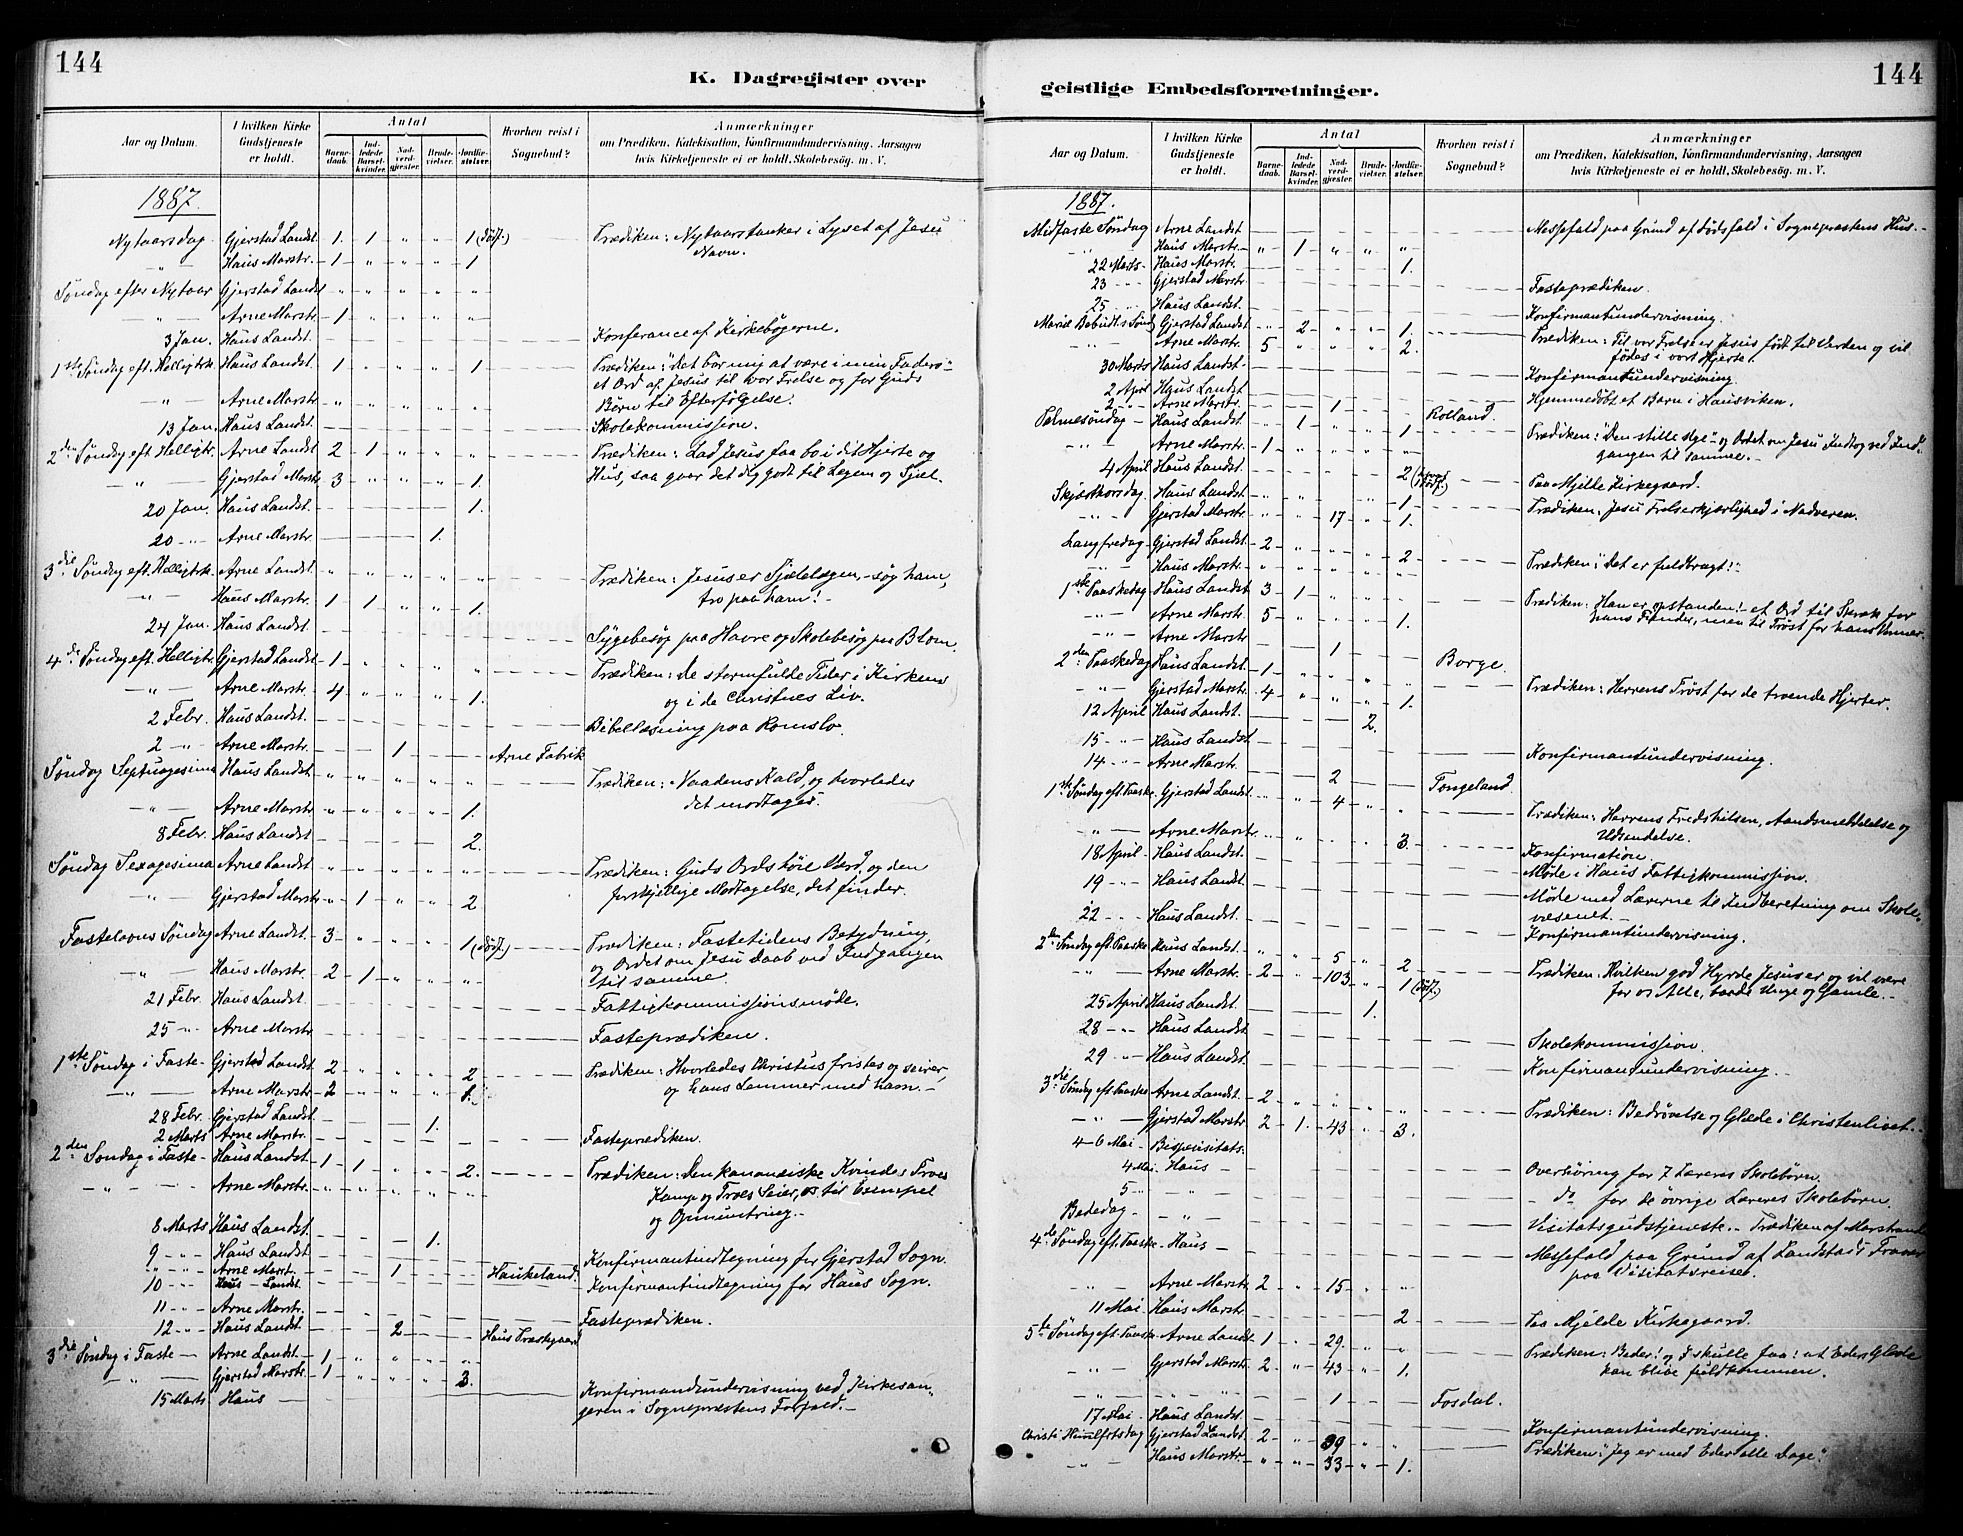 144
K. Dagregister over
Aar og Datum.
I hvilken Kirke Gudstjeneste er holdt.
Antal
Barnedaab.
Indledede Barselkvinder.
Nadverdgjester.
Brudevielser.
Jordfæstelser.
Hvorhen reist i Sognebud?
Anmærkninger
om Prædiken, Katekisation, Konfirmandundervisning, Aarsagen
hvis Kirketjeneste ei er holdt, Skolebesøg. m. V.
1887.
Nytaarsdag Gjerstad Landst. 1. 1 „ „ 1 (dødf.) Prædiken: Nytaarstanker i Lyset af Jesu
Navn.
„ Haus Marstr. 1 „ „ „ 1
Søndag efter Nytaar Gjerstad Landst „ „ „ „ „
„ Arne Marstr. 1 „ „ „ „
3 Jan. Haus Landst. Konferance af Kirkebøgerne.
1ste Søndag eft. Helligtrk. Haus Landst. 1 „ „ „ 1 Prædiken: "Det bør mig at være i min Faders"
et Ord af Jesus til vor Frelse og for Guds
„ Arne Marstr. „ „ „ „ „ Børn til Efterfølgelse.
13 Jan. Haus Landst. Skolekommission.
2den Søndag eft. Helligtr. Arne Landst 2 1 „ „ „ Prædiken: Lad Jesus faa bo i dit Hjerte og
„ Gjerstad Marstr 3 „ „ „ 1. Hus, saa gaar det dig godt til Legem og Sjæl.
20 Jan. Haus Landst. 1.
20 „ Arne Marstr. 1.
3die Søndag eft. Helligtrk. Arne Landst. „ „ „ „ „ Prædiken: Jesus er Sjælelægen, søg ham,
„ Haus Marstr. 1 1 „ „ 1. tro paa ham!
24 Jan. Haus Landst. Sygebesøg paa Havre og Skolebesøg paa Blom.
4de Søndag eft. Helligtr. Gjerstad Landst 1 „ „ „ „ Prædiken: De stormfulde Tider i Kirkens
„ Arne Marstr. 4 „ „ „ 1. og i de Christnes Liv.
2 Febr. Haus Landst. Bibellæsning paa Romslo.
2 „ Arne Marstr. 1 Arne Fabrik
Søndag Septuagesima Haus Landst „ „ „ „ „ Prædiken: Naadens Kald, og hvorledes
det modtages.
„ Arne Marstr. „ „ „ „ 1.
8 Febr. Haus Landst. 2.
Søndag Sexagesima Arne Landst. „ „ „ „ „ Prædiken: Guds Ords høie Værd, og den
forskjellige Modtagelse, det finder.
„ Gjerstad Marstr „ 1 „ „ 2
Fastelavns Søndag Arne Landst. 3 „ „ „ 1 (dødf.) Prædiken: Fastetidens Betydning,
og Ordet om Jesu Daab ved Indgangen
„ Haus Marstr. 2 1 „ „ „ til samme.
21 Febr. Haus Landst. Fattigkommissionsmøde.
25 „ Arne Marstr Fasteprædiken.
1ste Søndag i Faste Gjerstad Landst 2 „ „ „ 2 Prædiken: Hvorledes Christus fristes og seirer,
„ Arne Marstr. 2 „ „ „ 1. og hans Lemmer med ham.
28 Febr. Gjerstad Landst. 1.
2 Marts Arne Marstr. Fasteprædiken.
2den Søndag i Faste Haus Landst. 1 1 „ „ 2. Prædiken: Den kananæiske Kvindes Troes
„ Arne Marstr. „ „ „ „ „ Kamp og Troes Seier, os til Exempel
og Opmuntring.
8 Marts Haus Landst. 1.
9 „ Haus Landst Konfirmantindtegning for Gjerstad Sogn.
„ Arne Marst. 1 Haukeland.
10 „ Haus Landst. Konfirmantindtegning for Haus Sogn.
11 „ Arne Marstr. Fasteprædiken.
12 „ Haus Landst. 2 Haus Præstegaard
3die Søndag i Faste Arne Landst. 1 „ „ „ „
„ Gjerstad Marstr. 1 „ „ „ 3.
15 Marts Haus Konfirmandundervisning ved Kirkesan-
geren i Sognepræstens Forfald.
144
geistlige Embedsforretninger.
Aar og Datum.
I hvilken Kirke Gudstjeneste er holdt.
Antal
Barnedaab.
Indledede Barselkvinder.
Nadverdgjester.
Brudevielser.
Jordfæstelser.
Hvorhen reist i Sognebud?
Anmærkninger
om Prædiken, Katekisation, Konfirmandundervisning, Aarsagen
hvis Kirketjeneste ei er holdt, Skolebesøg. m. V.
1887.
Midfaste Søndag Arne Landst Messefald paa Grund af Dødsfald i Sognepræstens Hus.
„ Haus Marstr. „ 1 „ „ „
22 Marts Haus Marstr. 1.
23 Gjerstad Marstr Fasteprædiken.
25 Haus Landst. Konfirmantundervisning.
Mariæ Bebud.s Sønd. Gjerstad Landst „ 2 „ „ 1. Prædiken: Til vor Frelse er Jesus født til Verden og vil
„ Arne Marstr. 5 „ „ „ 2. fødes i vort Hjerte.
30 Marts Haus Landst. Konfirmantundervisning.
2 April Haus Landst Hjemmedøbt et Barn i Hausviken.
2 „ Arne Marstr. 1 Rolland.
Palmesøndag Haus Landst. „ 1 „ „ 1. Prædiken: "Den stille Uge" og Ordet om Jesu Indtog ved Ind-
„ Arne Marstr. 1 „ „ „ „ gangen til samme.
4 April Haus Landst. 2 Paa Mjelde Kirkegaard.
Skjærthorsdag Haus Landst. „ „ „ „ 1 Prædiken: Jesu Frelserkjærlighed i Nadveren.
„ Gjerstad Marstr. „ „ 17 „ 1.
Langfredag Gjerstad Landst. 2 „ „ „ 2 Prædiken: "Det er fuldbragt!"
„ Haus Marstr. „ „ „ „ „
1ste Paaskedag Haus Landst 3 1 „ „ „ Prædiken: Han er opstanden! et Ord til Skræk for
„ Arne Marstr. 5 „ „ „ 1. hans Fiender, men til Trøst for hans Venner.
„ Arne Marstr 1 Borge.
2den Paaskedag Haus Landst. 1 „ „ „ „ Prædiken: Herrens Trøst for de troende Hjerter.
„ Gjerstad Marstr. 4 „ „ „ 1.
12 April Haus Landst. 2.
15 „ Haus Landst Konfirmantundervisning.
14 „ Arne Marstr. 2 Tongeland.
1ste Søndag eft. Paaske Gjerstad Landst. „ „ 4 „ „ Prædiken: Herrens Fredshilsen, Aandsmeddelelse og
„ Arne Marstr. „ „ „ „ 3. Udsendelse.
18 April Haus Landst. Konfirmation.
Møde i Haus Fattigkommission.
19 „ Haus Landst. Møde med Lærerne til Indberetning om Skole-
væsenet.
22 „ Haus Landst. Konfirmantundervisning.
2den Søndag eft. Paaske Haus Landst. „ „ 5 „ 2 Prædiken: Hvilken god Hyrde Jesus er og vil være
„ Arne Marstr. 2 „ 103 „ 1 (dødf.) for os Alle, baade Unge og Gamle.
25 April Haus Landst. 1.
28 „ Haus Landst Skolekommission.
29 „ Haus Landst Konfirmantundervisning.
3die Søndag eft. Paaske Arne Landst. 2 „ „ „ „ Prædiken: Bedrøvelse og Glæde i Christenlivet.
„ Gjerstad Marstr 2 1. 43 „ 3.
4-6 Mai Bispevisitats.
4 Mai Haus Overhøring for 7 Læreres Skolebørn.
5 „ „ do for de øvrige Læreres Skolebørn.
Bededag „ Visitatsgudstjeneste. Prædiken af Marstrand
4de Søndag eft. Paaske Haus Messefald paa Grund af Landstads Fravær
paa Visitatsreise.
„ Arne Marstr. 2 „ 15 „ „
11 Mai Haus Marstr 2 Paa Mjelde Kirkegaard.
5te Søndag eft. Paaske Arne Landst 1 „ 29. „ „ Prædiken: Beder! og I skulle faa! at Eders Glæde
„ Gjerstad Marstr. 2 „ 43 „ 1. kan blive fuldkommen.
„ „ 1 Fosdal.
17 Mai Haus Landst. Konfirmantundervisning.
Christi Himmelfartsdag Gjerstad Landst. 2 „ 39 „ „ Prædiken: "Jeg er med Eder alle Dage."
„ Haus Marstr. „ „ 33 „ 1.